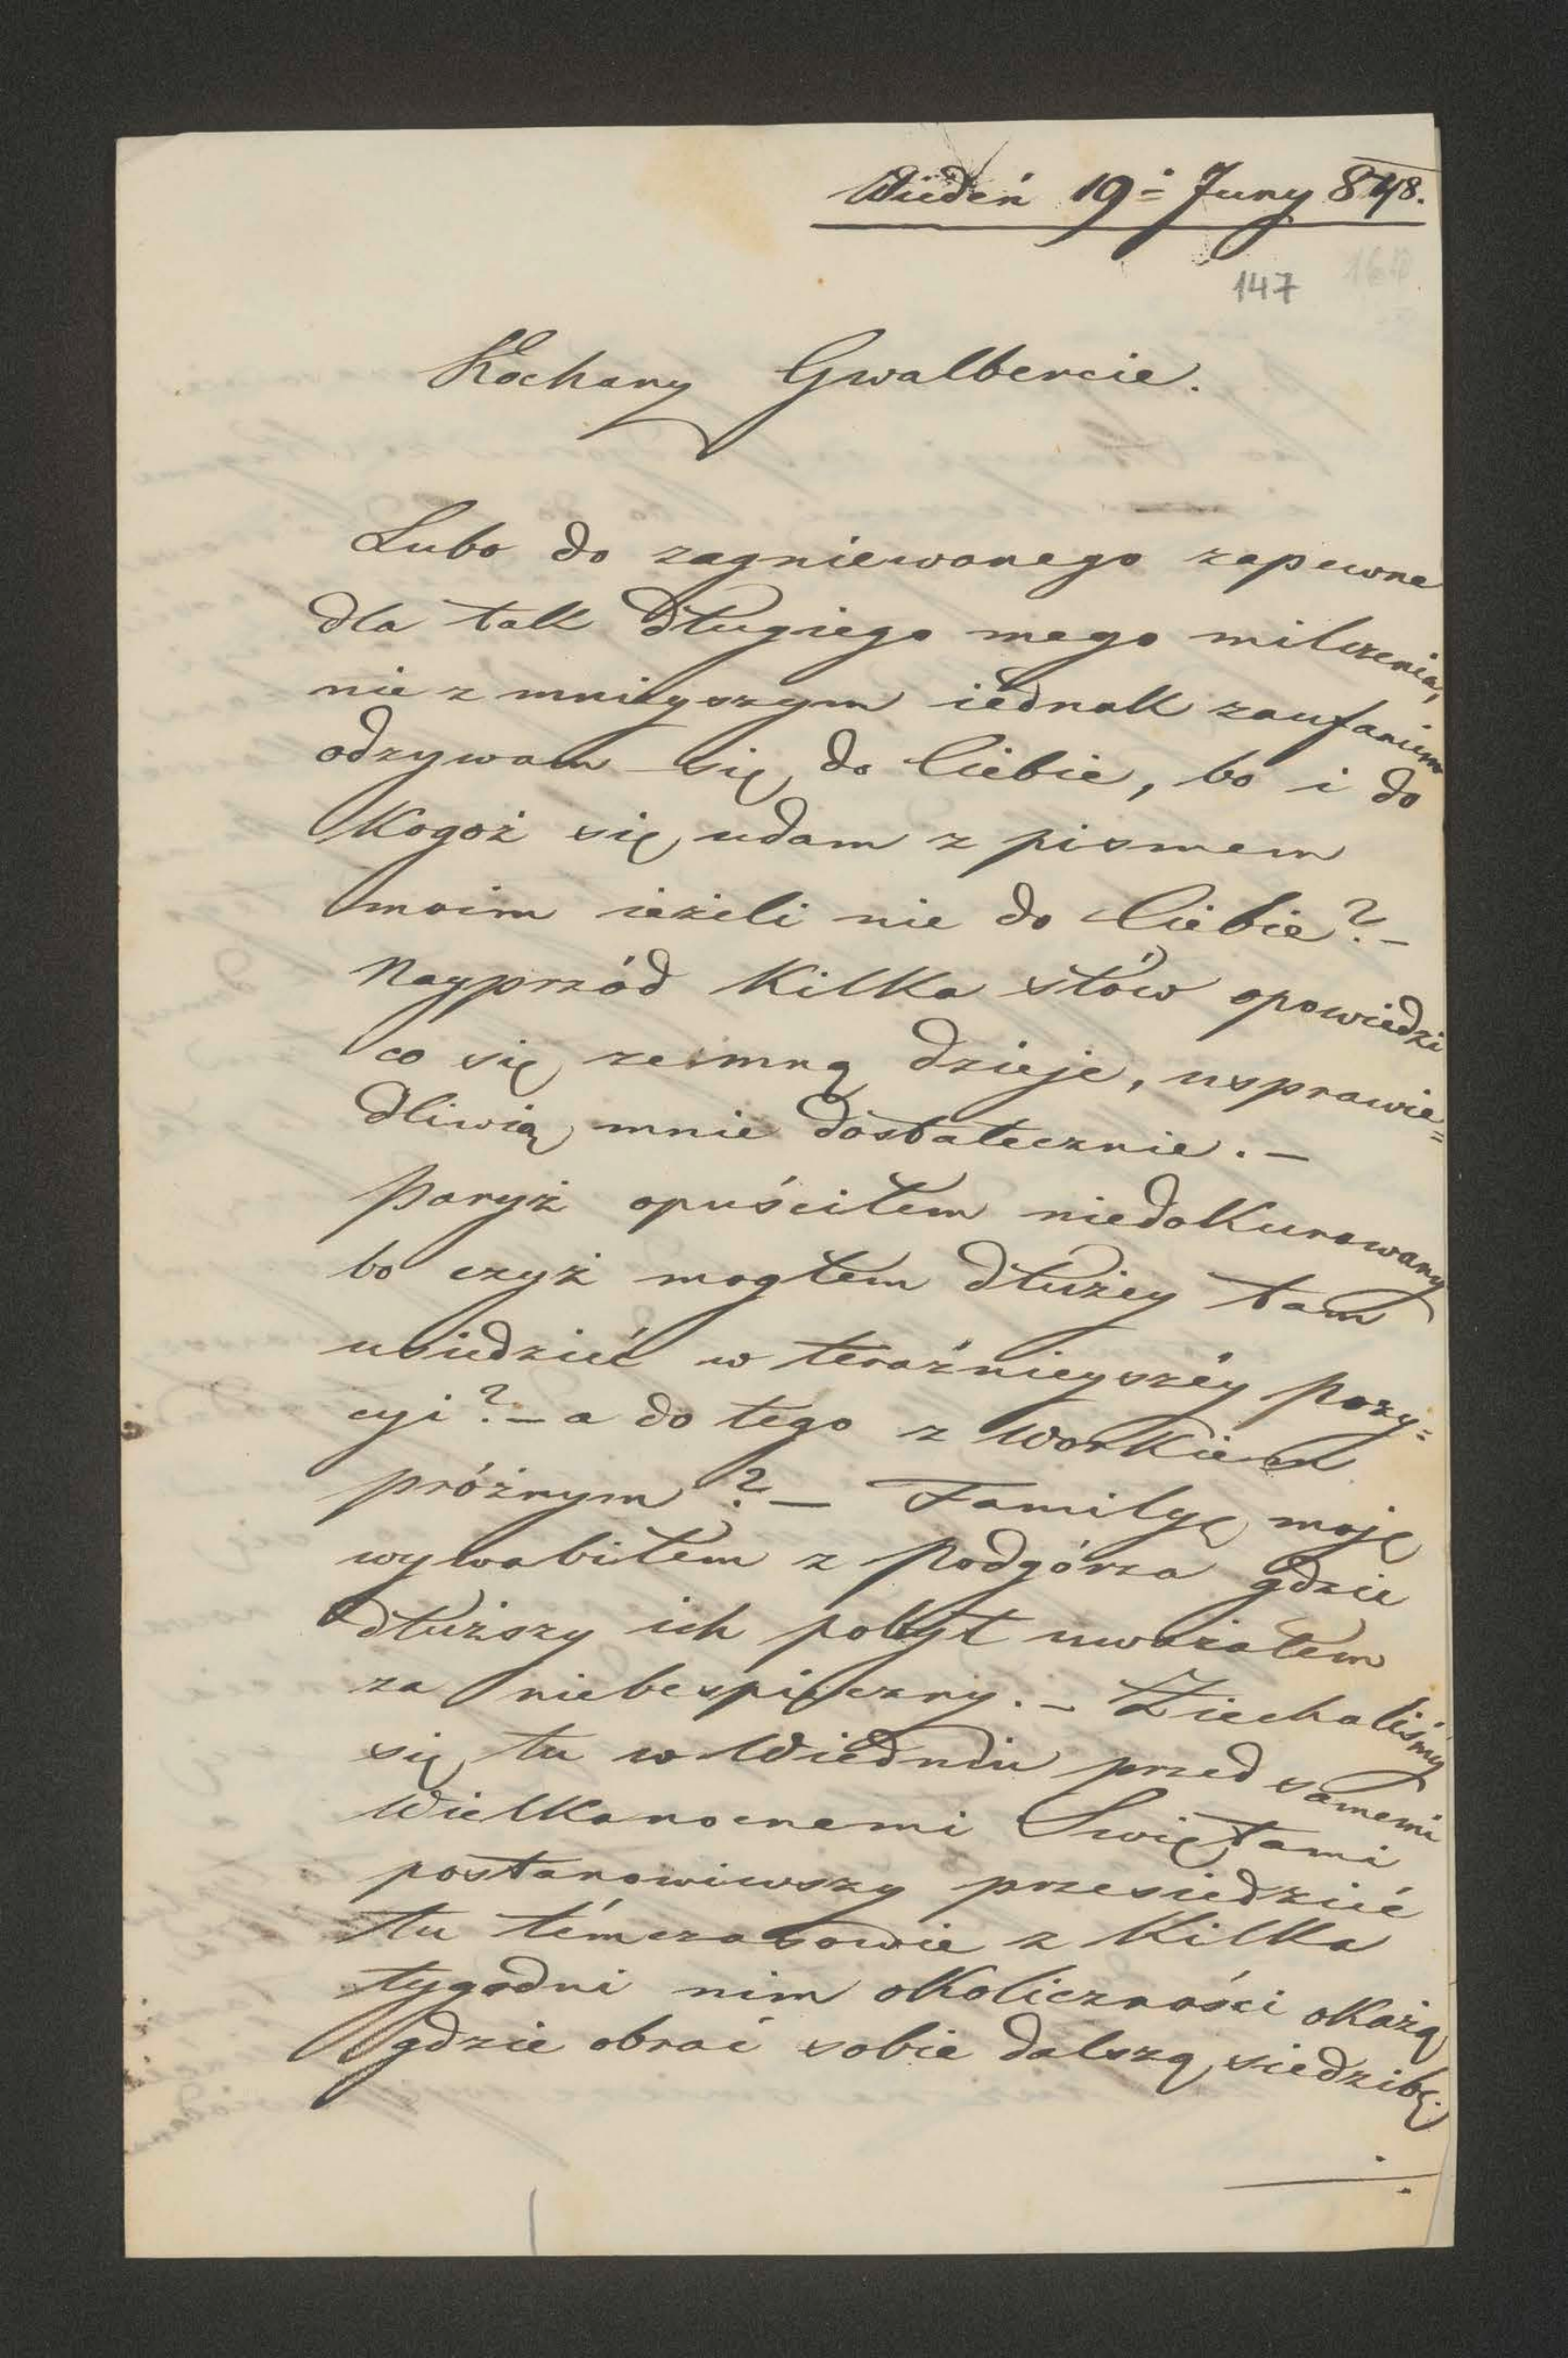 Wiedeń 19= Juny 848.
147
Kochany Gwalbercie.
Lubo do zagniewanego zapewne
dla tak długiego mego milczenia,
nie z mnieyszym iednak zaufaniem
odzywam się do Ciebie, bo i do
Kogoż się udam z pismem
moim ieżeli nie do Ciebie? –
Nayprzód Kilka słów opowiedzi
co się zemną dzieje, usprawie=
dliwią mnie dostatecznie. –
Paryż opuściłem niedokurowany
bo czyż mogłem dłużey tam
usiedzieć w teraźnieyszéy pozy=
cyi? – a do tego z workiem
próżnym? – Familyę moję
wywabiłem z Podgórza gdzie
dłuższy ich pobyt uważałem
za niebespieczny. – Ziechaliśmy
się tu w Wiedniu przed samemi
Wielkanocnemi Swiętami
postanowiwszy przesiedzieć
tu témczasowie z Kilka
tygodni nim okoliczności okażą
gdzie obrać sobie dalszą siedzibę.